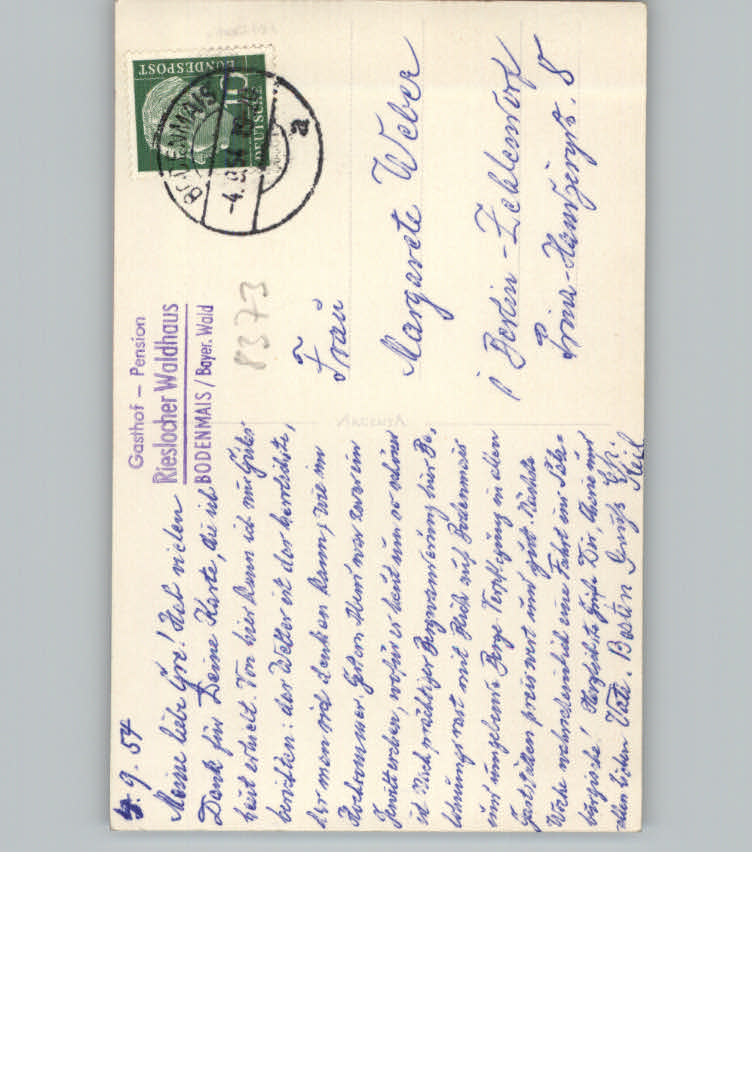 Gasthof – Pension
Rieslocher Waldhaus
BODENMAIS / Bayer. Wald
4.9.54
Meine liebe Gre! Hab vielen
Dank für Deine Karte, die ich
heut erhielt. Von hier kann ich nur Gutes
berichten: das Wetter ist das herrlichste,
das man sich denken kann, wie im
Hochsommer. Gestern Abend war zwar ein
Gewitterchen, wofür es heut um so schöner
ist. Nach prächtiger Bergwanderung hier
mit Blick auf Bodenmais
und umgebende Berge. Verpflegung in allen
Gaststätten preiswert und gut. Nächste
Woche wahrscheinlich eine Fahrt ins
Herzlichste Grüße Dir
allen Lieben Vati. Besten Gruß
BUNDESPOST
DEUTSCHE
BODENMAIS
-4.9.54
a
8373
Frau
Margarete Weber
Berlin-Zehlendorf
Prinz-Handjerystr. 8
ARGENTA